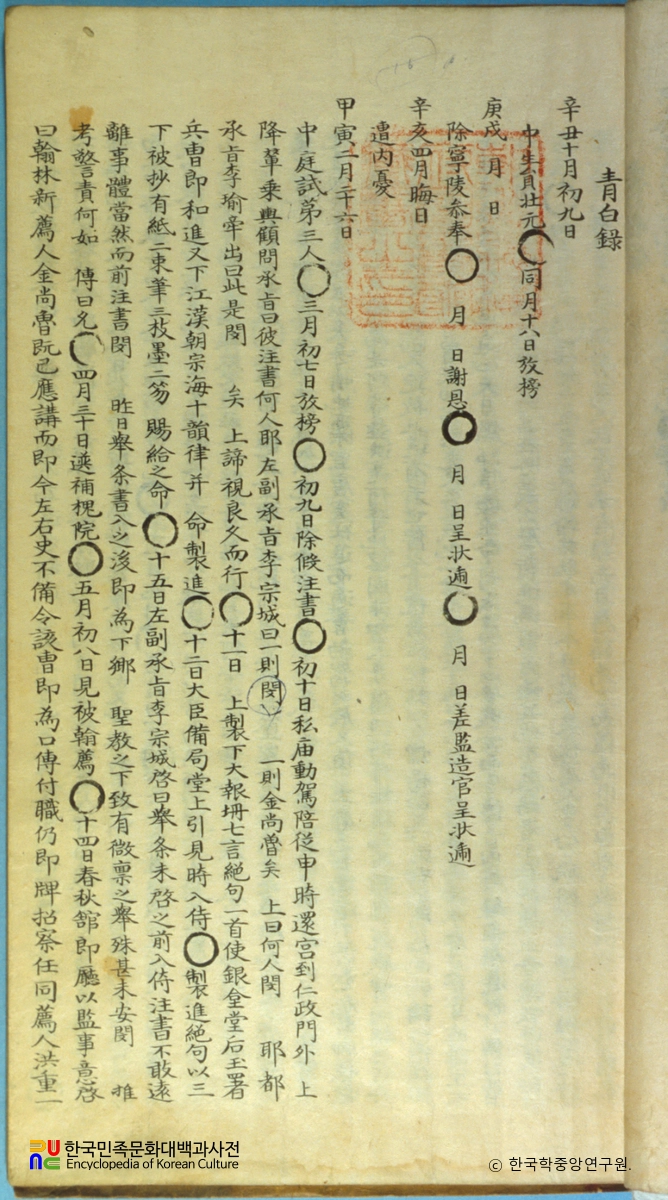 青白録
辛丑十月初九日
中生員壯元○同月十八日放榜
庚戌 月 日
除寧陵叅奉○ 月 日謝恩○ 月 日呈狀遞○ 月 日差監造官呈狀遞
辛亥四月晦日
遭内憂
甲寅二月二十六日
中庭試第三人○三月初七日放榜○初九日除假注書○初十日私庙動駕陪從申時還宮到仁政門外 上
降輦乘輿顧問承旨曰彼注書何人耶左副承旨李宗城曰一則閔 一則金尚魯矣 上曰何人閔 耶都
承旨李瑜率出曰此是閔 矣 上諦視良久而行○十一日 上製下大報壇七言絶句一首使銀臺堂后玉署
兵曹即和進又下江漢朝宗海十韻律并 命製進○十二日大臣備局堂上引見時入侍○製進絶句以三
下被抄有紙二束筆三枝墨二笏 賜給之命○十五日左副承旨李宗城啓曰舉条未啓之前入侍注書不敢遠
離事體當然而前注書閔 昨日舉条書入之後即為下鄉 聖教之下致有微禀之舉殊甚未安閔 推
考警責何如 傳曰允○四月三十日選補槐院○五月初八日見被翰薦○十四日春秋館郎廳以監事意啓
曰翰林新薦人金尚魯旣已應講而即今左右史不備令該曹即為口傳付職仍即牌招察任同薦人洪重一
한국민족문화대백과사전
Encyclopedia of Korean Culture
ⓒ 한국학중앙연구원.